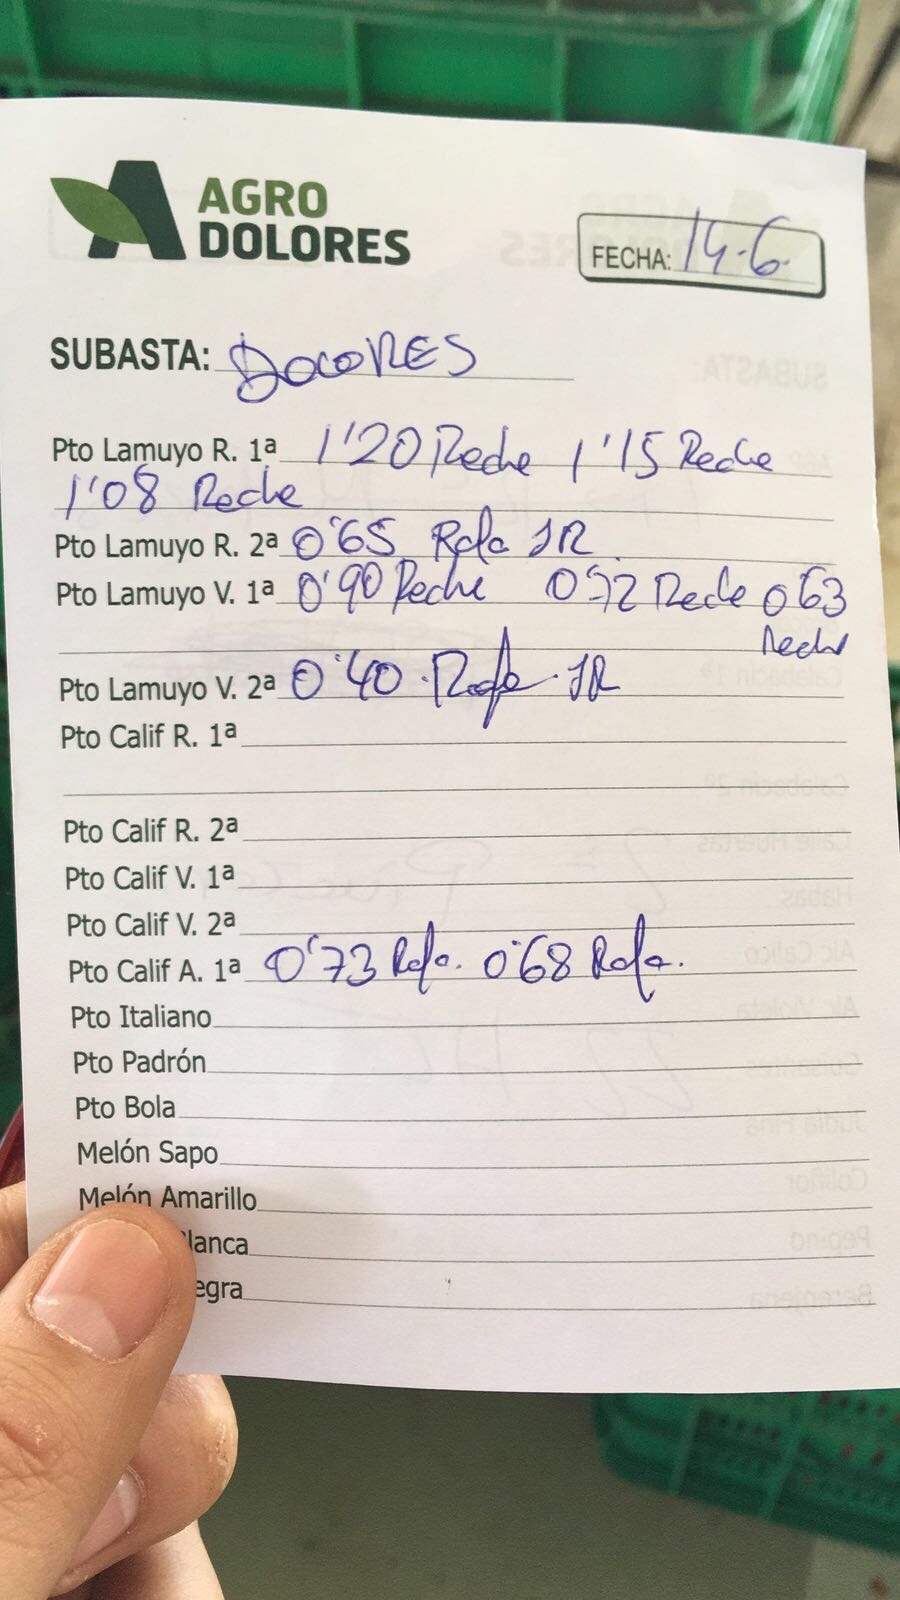 AGRO
DOLORES
FECHA: 14-6.
SUBASTA: DOLORES
Pto Lamuyo R. 1ª 1'20 Reche 1'15 Reche
1'08 Reche
Pto Lamuyo R. 2ª 0'65 Rafa JR
Pto Lamuyo V. 1ª 0'90 Reche 0'72 Reche 0'63
Reche
Pto Lamuyo V. 2ª 0'40 . Rafa . JR
Pto Calif R. 1ª
Pto Calif R. 2ª
Pto Calif V. 1ª
Pto Calif V. 2ª
Pto Calif A. 1ª 0'73 Rafa. 0'68 Rafa.
Pto Italiano
Pto Padrón
Pto Bola
Melón Sapo
Melón Amarillo
lanca
egra